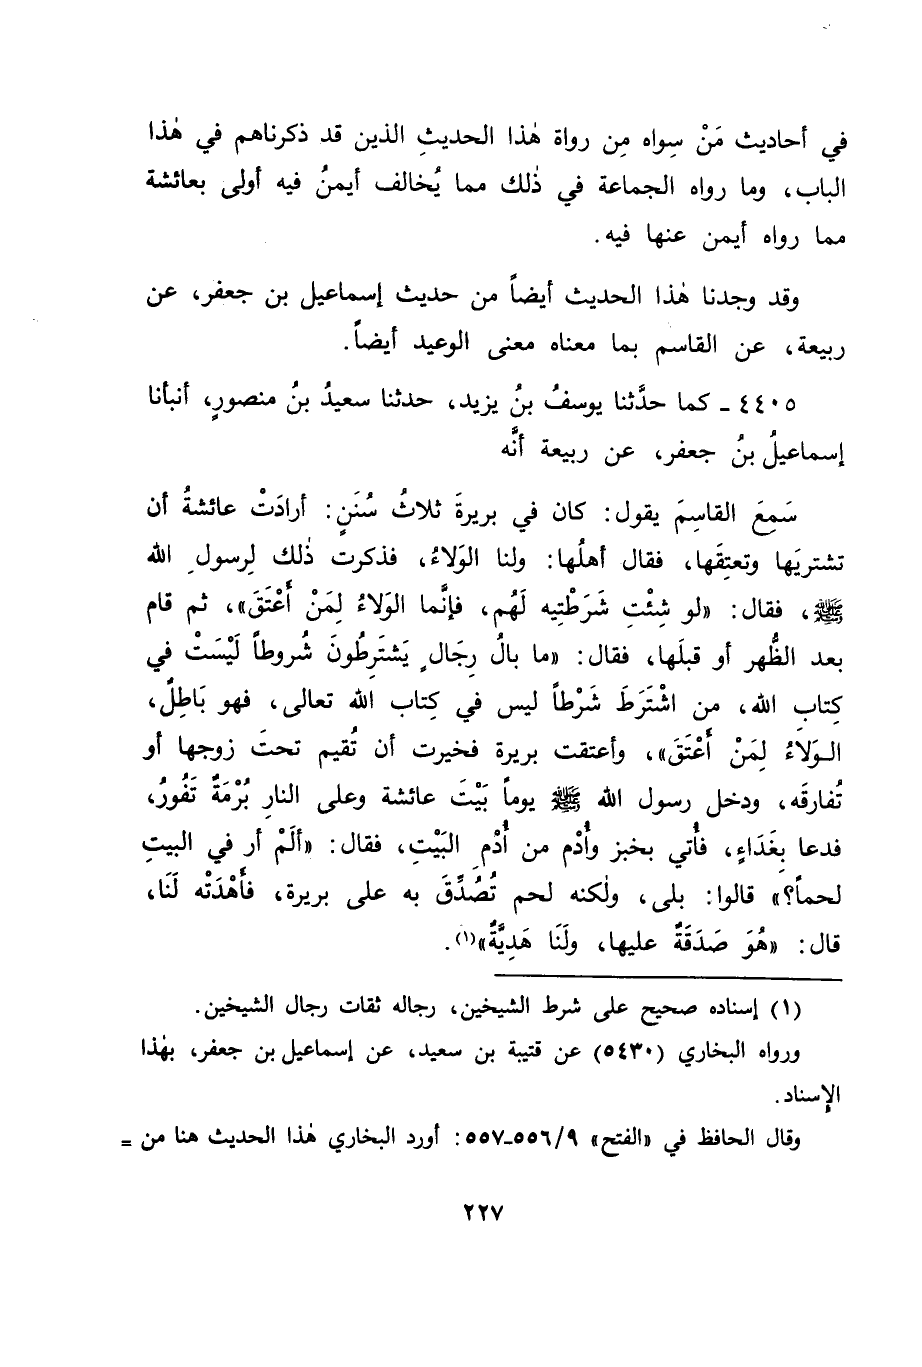 في أحاديث مَنْ سِواه مِن رواة هٰذا الحديثِ الذين قد ذكرناهم في هٰذا
الباب، وما رواه الجماعة في ذٰلك مما يُخالف أيمنُ فيه أولى بعائشة
مما رواه أيمن عنها فيه.
وقد وجدنا هٰذا الحديث أيضاً من حديث إسماعيل بن جعفر، عن
ربيعة، عن القاسم بما معناه معنى الوعيد أيضاً.
٤٤٠٥ ـ كما حدَّثنا يوسفُ بنُ يزيد، حدثنا سعيدُ بنُ منصورٍ، أنبأنا
إسماعيلُ بنُ جعفر، عن ربيعة أنَّه
سَمِعَ القاسِمَ يقول: كان في بريرةَ ثلاثُ سُنَنٍ: أرادَتْ عائشةُ أن
تشتريَها وتعتِقَها، فقال أهلُها: ولنا الوَلاءُ، فذكرت ذٰلك لِرسولِ الله
ﷺ، فقال: «لو شِئْتِ شَرَطْتِيه لَهُم، فإنَّما الوَلاءُ لِمَنْ أَعْتَقَ»، ثم قام
بعد الظُّهر أو قبلَها، فقال: «ما بالُ رِجَالٍ يَشترِطُونَ شُروطاً لَيْسَتْ في
كتابِ الله، من اشْتَرَطَ شَرْطاً ليس في كِتاب الله تعالى، فهو بَاطِلٌ،
الوَلاءُ لِمَنْ أَعْتَقَ»، وأعتقت بريرة فخيرت أن تُقيم تحتَ زوجها أو
تُفارقَه، ودخل رسول الله ﷺ يوماً بَيْتَ عائشة وعلى النارِ بُرْمَةٌ تَفُورُ،
فدعا بِغَدَاءٍ، فأُتي بخبز وأُدْم من أُدْمِ البَيْتِ، فقال: «ألَمْ أر في البيتِ
لحماً؟» قالوا: بلى، ولٰكنه لحم تُصُدِّقَ به على بريرة، فأَهْدَتْه لَنَا،
قال: «هُوَ صَدَقَةٌ عليها، ولَنَا هَدِيَّةٌ»(١).
(١) إسناده صحيح على شرط الشيخين، رجاله ثقات رجال الشيخين.
ورواه البخاري (٥٤٣٠) عن قتيبة بن سعيد، عن إسماعيل بن جعفر، بهٰذا
الإسناد.
وقال الحافظ في «الفتح» ٥٥٦/٩ـ٥٥٧: أورد البخاري هٰذا الحديث هنا من =
٢٢٧